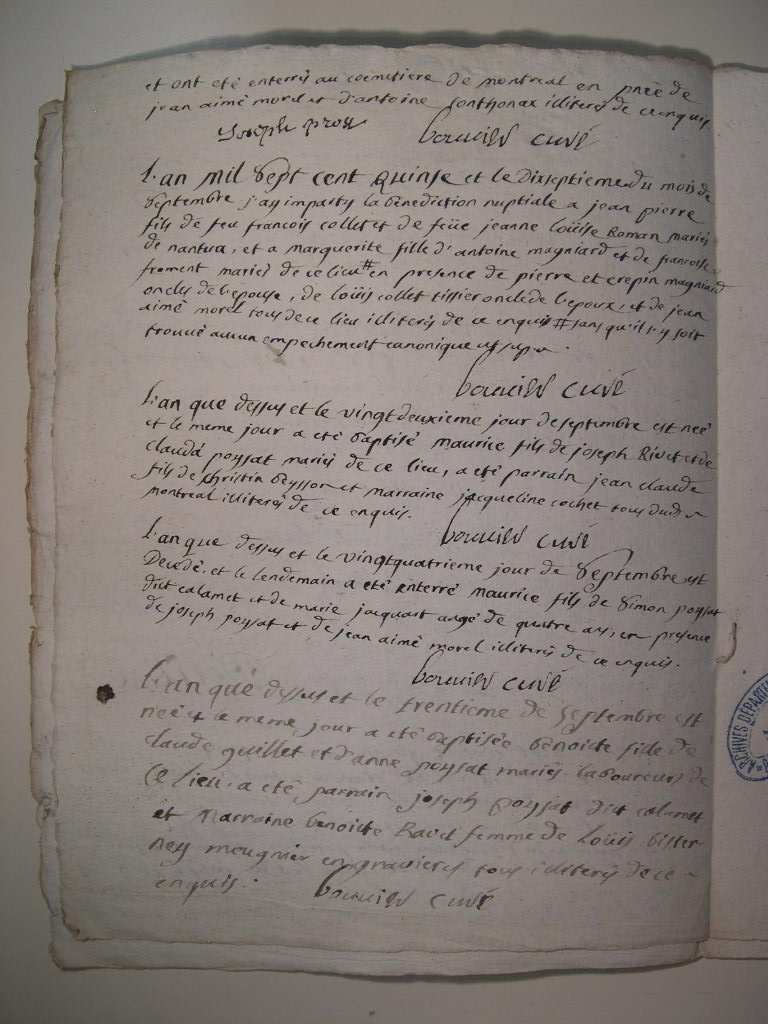 et ont eté enterrés au coemitiere de montreal en pnce de
jean aimé morel et d'antoine sonthonax illiterés de ce enquis
Joseph prost bouuier curé
L'an mil sept cent quinse et le dixseptieme du mois de
septembre j'ay imparty la benediction nuptiale a jean pierre
fils de feu francois collet et de feüe jeanne loüise Roman mariés
de nantua, et a marguerite fille d'antoine magniard et de francoise
froment mariés de ce lieu # en presence de pierre et crepin magniard
oncles de l'epouse, de loüis collet tissier oncle de l'epoux, et de jean
aimé morel tous de ce lieu illiterés de ce enquis # sans qu'il s'y soit
trouué aucun empechement canonique
bouuier curé
L'an que dessus et le vingtdeuxieme jour de septembre est neé
et le meme jour a eté baptisé maurice fils de joseph Rivet et de
clauda poysat mariés de ce lieu, a eté parrain jean claude
fils de christin beysson et marraine jacqueline cochet tous dud
montreal illiterés de ce enquis.
bouuier curé
L'an que dessus et le vingtquatrieme jour de septembre est
Decedé, et le lendemain a eté enterré maurice fils de simon poysat
dit calamet et de marie jacquart aagé de quatre ans, en presence
de joseph poysat et de jean aimé morel illiterés de ce enquis.
bouuier curé
L'an que dessus et le trentieme de septembre est
neé et le meme jour a eté baptisée benoite fille de
claude guillet et d'anne poysat mariés laboureurs de
ce lieu. a eté parrain joseph poysat dit calamet
et marraine benoite Ravet femme de loüis bister
ney meugnier en gravieres tous illiterés de ce
enquis. bouuier curé
ARCHIVES DEPARTE